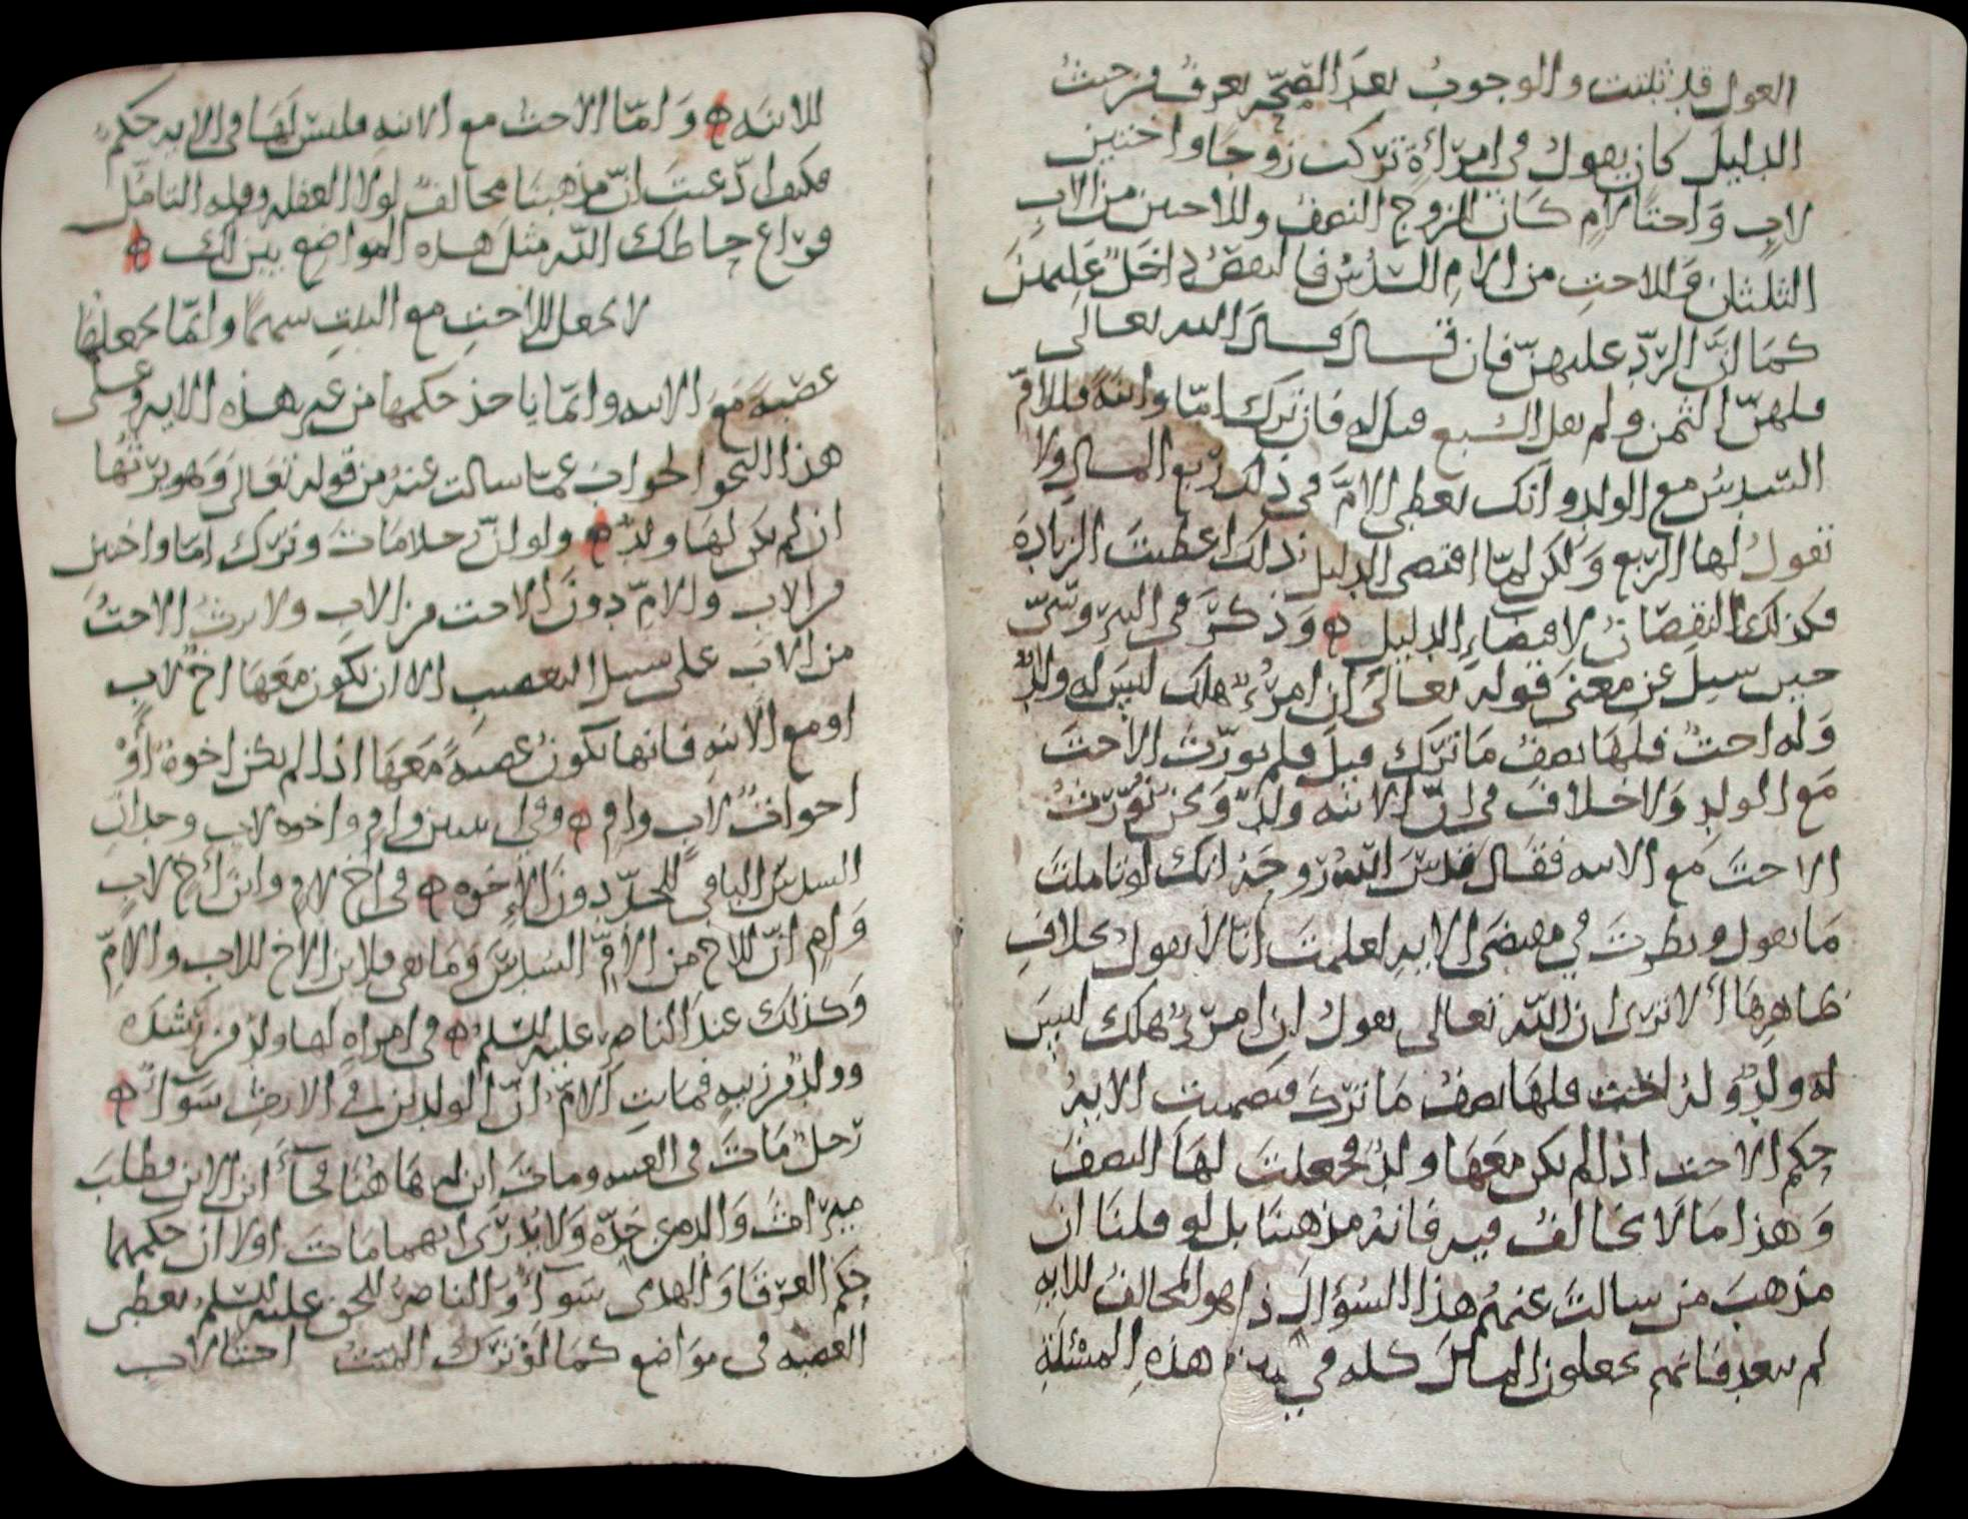 العول قد ثبتت والوجوب بعد الصحة يعرف من حيث
الدليل كان يقول في امرأة تركت زوجا واختين
لاب واختا لام كان للزوج النصف وللاختين من الاب
الثلثان وللاخت من الام السدس فالنقص داخل عليهن
كما ان الرد عليهن فان قال قال الله تعالى
فلهن الثمن ولم يقل السبع قيل له فان ترك اما وابنة فللام
السدس مع الولد وانك تعطي الام في ذلك ربع المال ولا
تقول لها الربع ولكن لما اقتضى الدليل ذلك اعطيت الزيادة
فكذلك النقصان لاقتضاء الدليل وذكر في
حين سيل عن معنى قوله تعالى ان امرؤ هلك ليس له ولد
وله اخت فلها نصف ما ترك قيل فلم يورث الاخت
مع الولد ولا خلاف في ان الابنة ولد ونحن نورث
الاخت مع الابنة فقال قدس الله روحه انك لو تاملت
ما نقول ونظرت في مقتضى الاية لعلمت انا لا نقول بخلاف
ظاهرها ألا ترى ان الله تعالى يقول ان امرؤ هلك ليس
له ولد وله اخت فلها نصف ما ترك فتضمنت الاية
حكم الاخت اذا لم يكن معها ولد فجعلت لها النصف
وهذا ما لا يخالف فيه فانه مذهبنا بل لو قلنا ان
مذهب من سالت عنهم هذا السؤال ذا هو المخالف للاية
لم يبعد فانهم يجعلون المال كله في هذه المسئلة
للابنة واما الاخت مع الابنة فليس لها في الاية حكم
فكيف ادعيت ان مذهبنا مخالف لولا الغفلة وقلة التامل
فراع حاطك الله مثل هذه المواضع يبين لك
لا يجعل للاخت مع البنت سهما وانما يجعلها
عصبة مع الابنة وانما ياخذ حكمها من غير هذه الاية وعلى
هذا النحو الجواب عما سالت عنه من قوله تعالى وهو يرثها
ان لم يكن لها ولد ولو ان رجلا مات وترك اما واختين
من الاب والام دون الاخت من الاب ولا ترث الاخت
من الاب على سبيل التعصيب الا ان يكون معها اخ لاب
او مع الابنة فانها تكون عصبة معها اذا لم يكن اخوة او
اخوات لاب وام وفي ابنتين وام واخوة لاب وجد ان
السدس الباقي للجد دون الاخوة في اخ لام وابن اخ لاب
وام ان للاخ من الام السدس وما بقي فلابن الاخ للاب والام
وكذلك عند الناصر عليه السلم في امراة لها ولد من رشدة
وولد من زنية فماتت الام ان الولدين في الارث سواء
رجل مات في الغيبة ومات ابن له هاهنا فجاء ابن الابن فطلب
ميراث والده من جده ولا يدرى ايهما مات اولا ان حكمهما
حكم الغرقا والهدمى سواء والناصر للحق عليه السلم يعطى
العصبة في مواضع كما لو ترك الميت اختا لاب